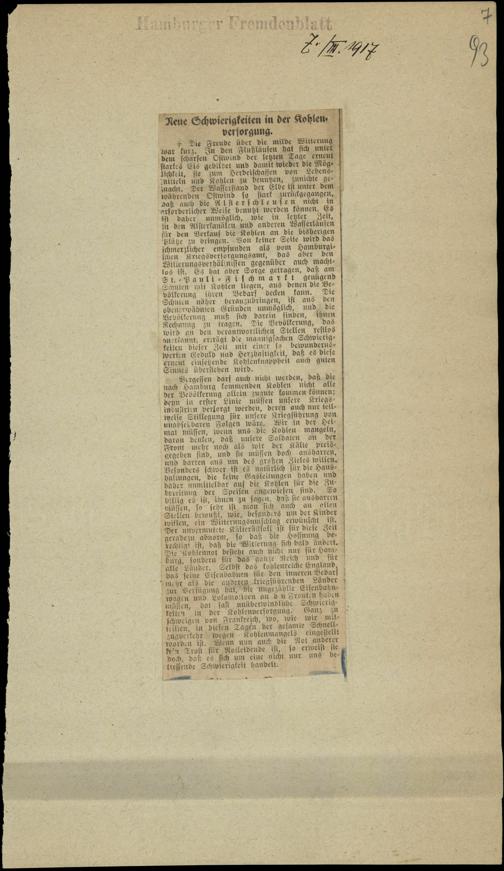 Hamburger Fremdenblatt
7
7. /III. 1917
93
Neue Schwierigkeiten in der Kohlen-
versorgung.
Die Freude über die milde Witterung
war kurz. In den Flußläufen hat sich unter
dem scharfen Ostwind der letzten Tage erneut
starkes Eis gebildet und damit wieder die Mög-
lichkeit, sie zum Herbeischaffen von Lebens-
mitteln und Kohlen zu benutzen, zunichte ge-
macht. Der Wasserstand der Elbe ist unter dem
währenden Ostwind so stark zurückgegangen,
daß auch die Alsterschleusen nicht in
erforderlicher Weise benutzt werden können. Es
ist daher unmöglich, wie in letzter Zeit,
in den Alsterkanälen und anderen Wasserläufen
für den Verkauf die Kohlen an die bisherigen
Plätze zu bringen. Von keiner Seite wird das
schmerzlicher empfunden als vom Hamburgi-
schen Kriegsversorgungsamt, das aber den
Witterungsverhältnissen gegenüber auch macht-
los ist. Es hat aber Sorge getragen, daß am
St.-Pauli-Fischmarkt genügend
Schuten mit Kohlen liegen, aus denen die Be-
völkerung ihren Bedarf decken kann. Die
Schuten näher heranzubringen, ist aus den
obenerwähnten Gründen unmöglich, und die
Bevölkerung muß sich darein finden, ihnen
Rechnung zu tragen. Die Bevölkerung, das
wird an den verantwortlichen Stellen restlos
anerkannt, erträgt die mannigfachen Schwierig-
keiten dieser Zeit mit einer so bewunderns-
werten Geduld und Herzhaftigkeit, daß es diese
erneut einsetzende Kohlenknappheit auch guten
Sinnes überstehen wird.
Vergessen darf auch nicht werden, daß die
nach Hamburg kommenden Kohlen nicht alle
der Bevölkerung allein zugute kommen können;
denn in erster Linie müssen unsere Kriegs-
industrien versorgt werden, deren auch nur teil-
weise Stillegung für unsere Kriegführung von
unabsehbaren Folgen wäre. Wir in der Hei-
mat müssen, wenn uns die Kohlen mangeln,
daran denken, daß unsere Soldaten an der
Front mehr noch als wir der Kälte preis-
gegeben sind, und sie müssen doch ausharren,
und harren aus um des großen Zieles willen.
Besonders schwer ist es natürlich für die Haus-
haltungen, die keine Gasleitungen haben und
daher unmittelbar auf die Kohlen für die Zu-
bereitung der Speisen angewiesen sind. So
billig es ist, ihnen zu sagen, daß sie ausharren
müssen, so sehr ist man sich auch an allen
Stellen bewußt, wie, besonders um der Kinder
willen, ein Witterungsumschlag erwünscht ist.
Der unvermutete Kälterückfall ist für diese Zeit
geradezu abnorm, so daß die Hoffnung be-
rechtigt ist, daß die Witterung sich bald ändert.
Die Kohlennot besteht auch nicht nur für Ham-
burg, sondern für das ganze Reich und für
alle Länder. Selbst das kohlenreiche England,
das seine Eisenbahnen für den inneren Bedarf
mehr als die anderen kriegführenden Länder
zur Verfügung hat, die ungezählte Eisenbahn-
wagen und Lokomotiven an den Fronten haben
müssen, hat fast unüberwindliche Schwierig-
keiten in der Kohlenversorgung. Ganz zu
schweigen von Frankreich, wo, wie wir mit-
teilten, in diesen Tagen der gesamte Schnell-
zugverkehr wegen Kohlenmangels eingestellt
worden ist. Wenn nun auch die Not anderer
kein Trost für Notleidende ist, so erweist sie
doch, daß es sich um eine nicht nur uns be-
treffende Schwierigkeit handelt.